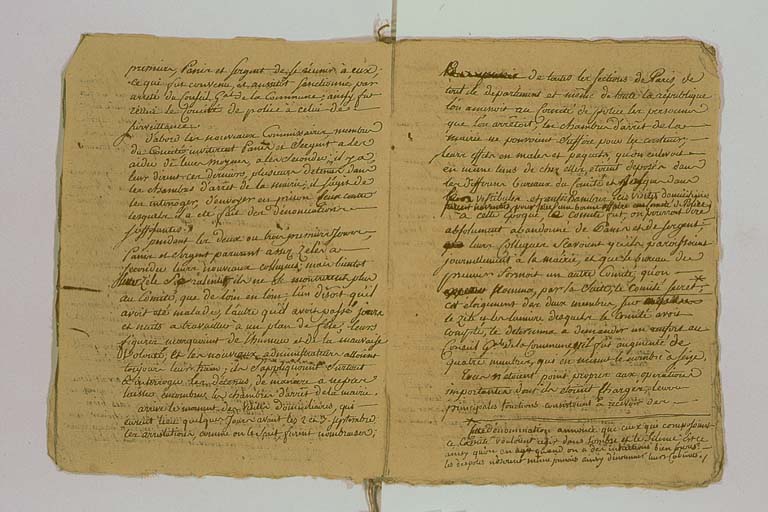 premier, Panis et Sergent de se réunir à eux;
ce qui fut convenu, et aussitôt sanctionné par
arrêté du Conseil Gal de la Commune; ainsi fut
réuni le Comité de police à celui de
surveillance.
D'abord les nouveaux Commissaires membres
du Comité, invitèrent Panis et Sergent à les
aider de leurs moyens, à les seconder; il y a,
leur dirent ces derniers, plusieurs détenus dans
les chambres d'arrêt de la mairie; il s'agit de
les interroger, d'envoyer en prison ceux contre
lesquels il a été fait des dénonciations
suffisantes.
pendant les deux ou trois premiers jours,
Panis et Sergent parurent assez zélés à
seconder leurs nouveaux collègues, mais bientôt
leur zèle se ralentit ils ne se montrèrent plus
au Comité, que de loin en loin; l'un disoit qu'il
avoit été malade, l'autre qu'il avoit passé jours
et nuits à travailler à un plan de fête, leurs
figures marquoient de l'humeur et de la mauvaise
volonté, et les nouveaux administrateurs alloient
toujours leur train; ils s'appliquoient surtout
à interroger les détenus, de manière à ne pas
laisser encombrer les chambres d'arrêt de la mairie.
arrive le moment des visites domiciliaires, qui
eurent lieu quelques jours avant les 2 et 3 septembre
les arrestations, comme on le sait, furent nombreuses;
De toutes les sections de Paris, de
tout le département et même de toute la république
l'on amenoit au Comité de police les personnes
que l'on arrêtoit; les chambres d'arrêt de la
mairie ne pouvoient suffire pour les contenir;
leurs effets en malles et paquets, qu'on enlevoit
en même tems de chez elles, étoient déposés dans
les différens bureaux du Comité et jusque dans
les vestibules et antichambres
à cette époque, le Comité fut, on pourroit dire
absolument abandonné de Panis et de Sergent;
leurs collègues sçavoient qu'ils paroissoient
journellement à la mairie, et que le bureau du
premier formoit un autre Comité, qu'on
nomma, par la suite, le Comité secret *
cet éloignement des deux membres sur
le zèle et les lumières desquels le Comité avoit
compté, le détermina à demander un renfort au
Conseil Gal de la Commune qui l'augmenta de
quatre membres, qui en mirent le nombre à seize.
Tous n'étoient point propres aux opérations
importantes dont ils étoient chargés; leurs
principales fonctions consistoient à recevoir des
* Cette dénomination annonce que ceux qui composoient
ce Comité vouloient agir dans l'ombre et le silence. Est-ce
ainsi qu'on en agit quand on a des intentions bien pures?
les despotes n'osèrent même jamais ainsi dénommer leurs Cabinets./